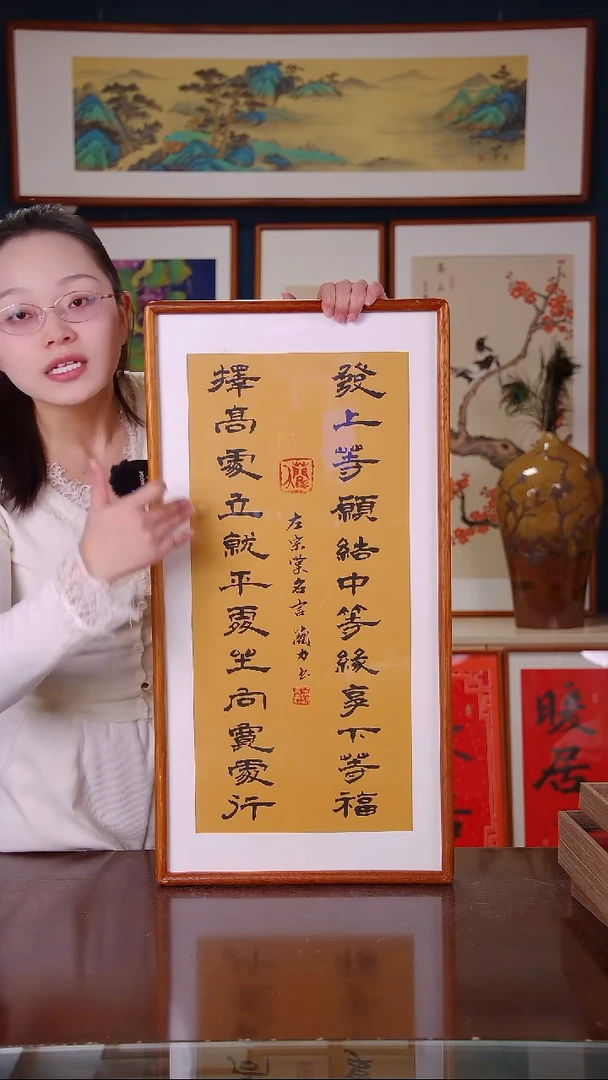 發上等願結中等緣享下等福
左宗棠名言
擇高處立就平處坐向寬處行
暖居